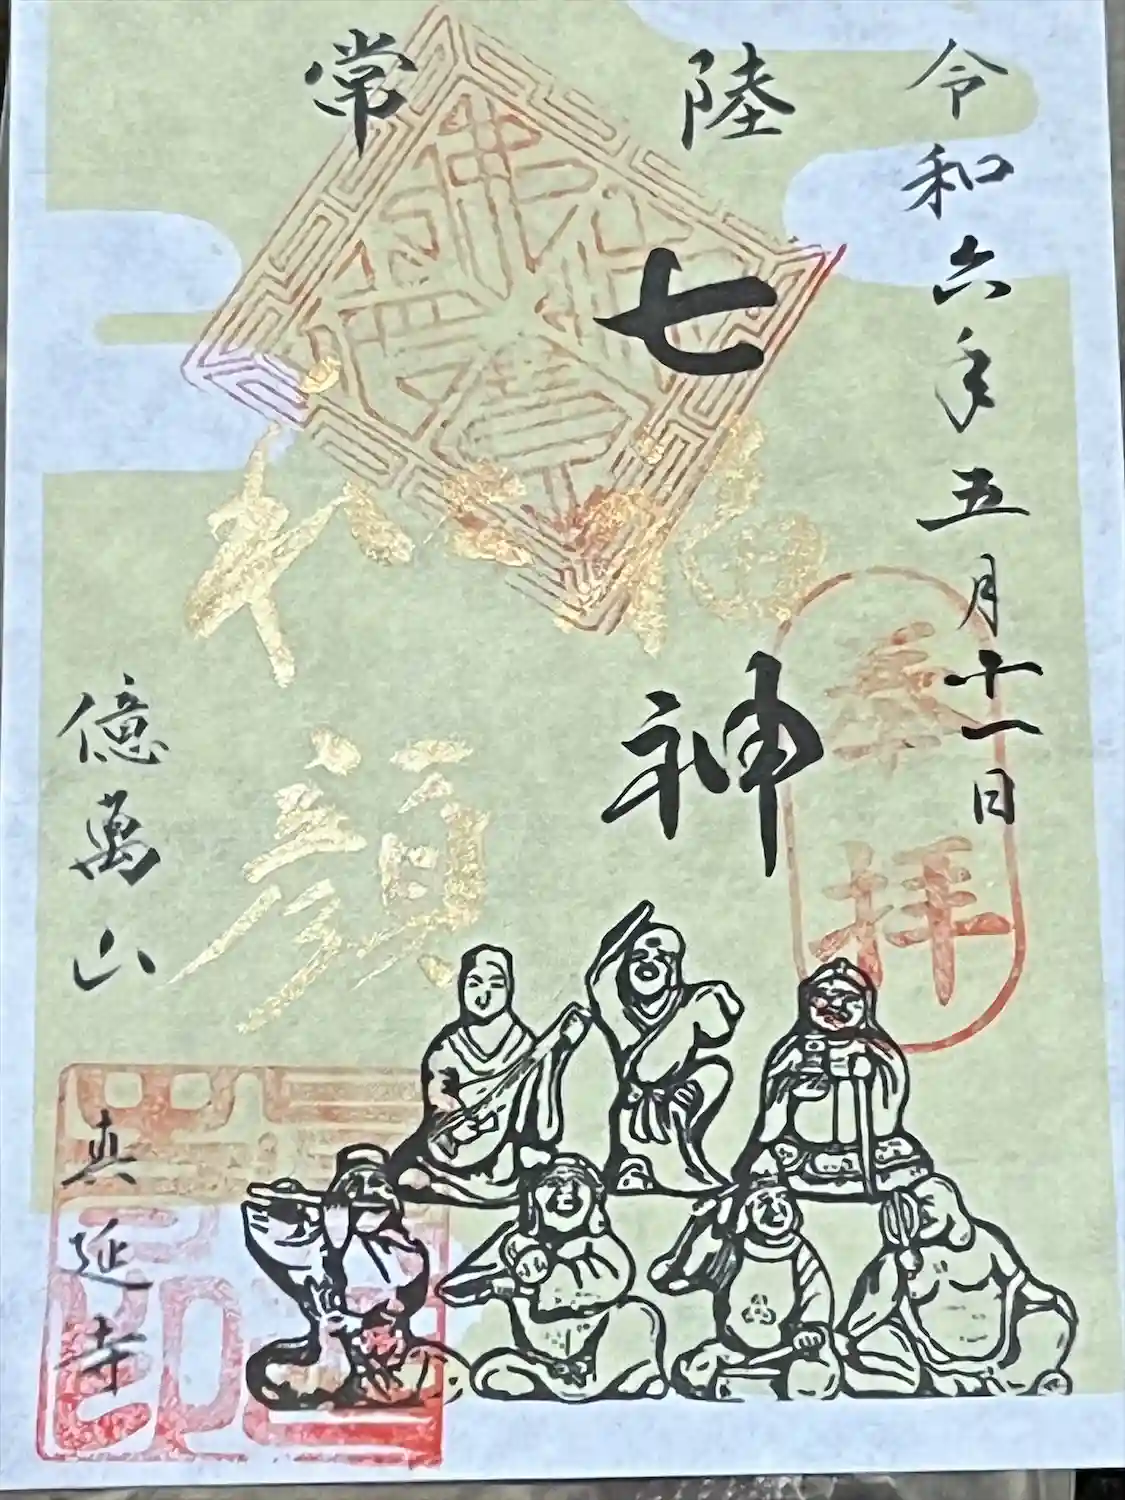 令和六年五月十一日
奉拝
常陸
七福神
和顔
億萬山
真延寺